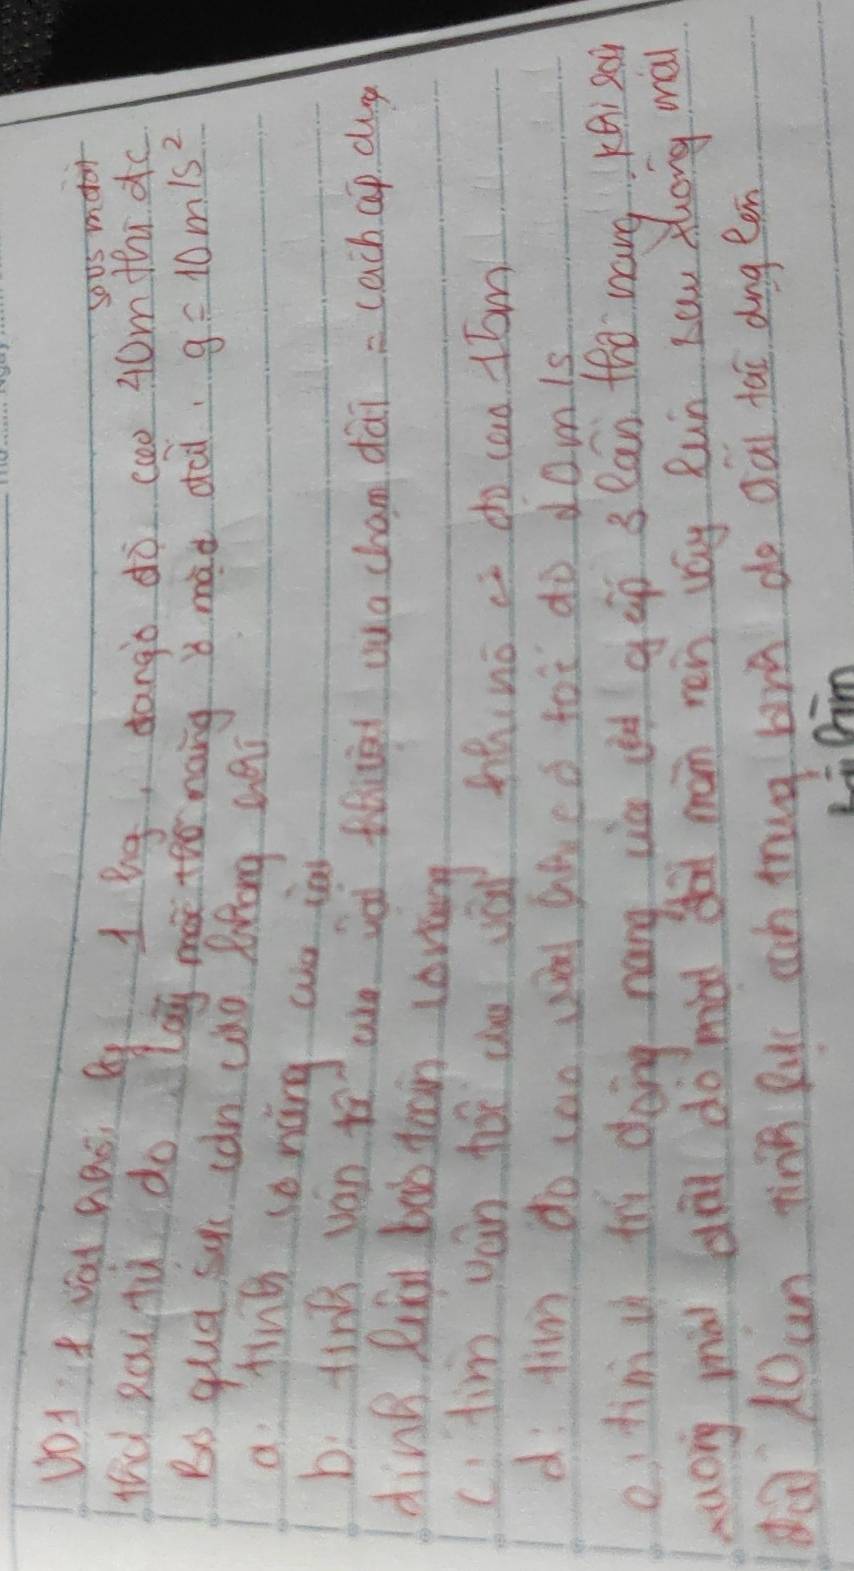 VD1: 1 vật khối lg 1 kg, đang ở độ cao 40m thì đc
so vs mđất
thả rơi tự do. Lấy mốc thế năng ở mặt đất, g = 10 m/s²
Bỏ qua sức cản của không khí
a. tính cơ năng của vật
b. tính vận tốc của vật khi vật vừa chạm đất = cách áp dụng
định luật bảo toàn cơ năng
c. tìm vận tốc của vật khi nó có độ cao 15m
d. tìm độ cao vật khi có tốc độ 20 m/s
e. tìm vị trí động năng của vật gấp 3 lần thế năng. khi rơi
xuống mặt đất do mặt đất mềm nên vật lún sâu xuống mặt
đất 10 cm tính lực cản trung bình do đất tác dụng lên
bài làm